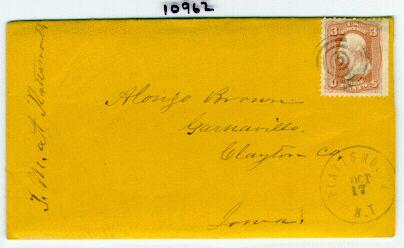 10962
3 3
U S
Alonzo Brown
Garnavillo.
Clayton Co.
Iowa.
PLATTSMOUTH
OCT
17
N.T